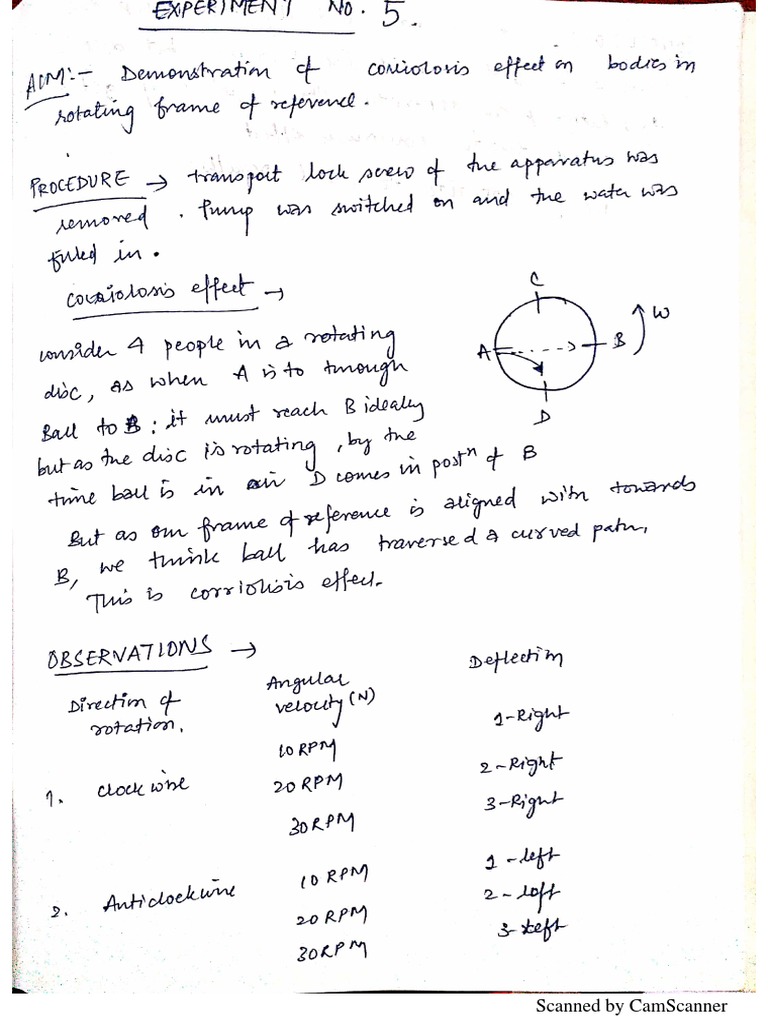 EXPERIMENT NO. 5.
AIM:- Demonstration of corriolosis effect on bodies in
rotating frame of reference.
PROCEDURE → transport lock screw of the apparatus was
removed. Pump was switched on and the water was
filled in.
corriolosis effect →
consider 4 people in a rotating
disc, as when A is to through
Ball to B: it must reach B ideally
but as the disc is rotating, by the
time ball is in air D comes in postⁿ of B
But as our frame of reference is aligned with towards
B, we think ball has traversed a curved path,
This is corriolisis effect.
C
A
B
W
D
OBSERVATIONS →
Direction of
rotation.
Angular
velocity (N)
Deflection
1. clockwise
10 RPM
1-Right
20 RPM
2-Right
30 RPM
3-Right
2. Anticlockwise
10 RPM
1-left
20 RPM
2-left
30 RPM
3-left
Scanned by CamScanner